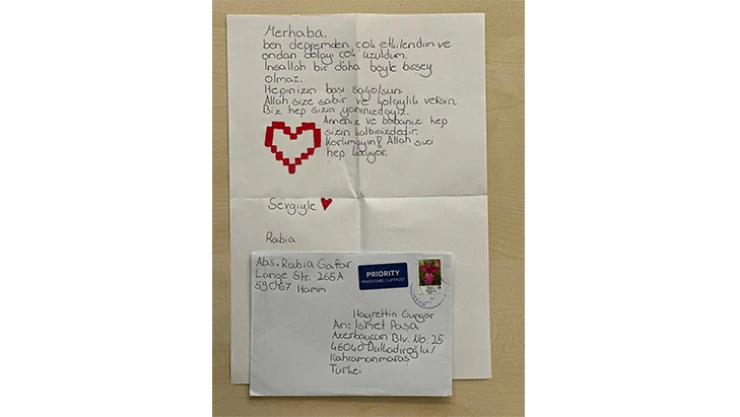 Merhaba,
ben depremden çok etkilendim ve
ondan dolayı çok üzüldüm.
İnşallah bir daha böyle birşey
olmaz.
Hepinizin başı sağolsun.
Allah size sabır ve kolaylık versin.
Biz hep sizin yanınızdayız.
Anneniz ve babanız hep
sizin kalbinizdedir.
Korkmayın! Allah sizi
hep koruyor.
Sevgiyle
Rabia
Abs. Rabia Gafar
Lange Str. 265A
59067 Hamm
PRIORITY
Hayrettin Güngör
An: İsmet Paşa
Azerbaycan Blv. No: 25
46040 Dulkadiroğlu/
Kahramanmaraş
Türkei